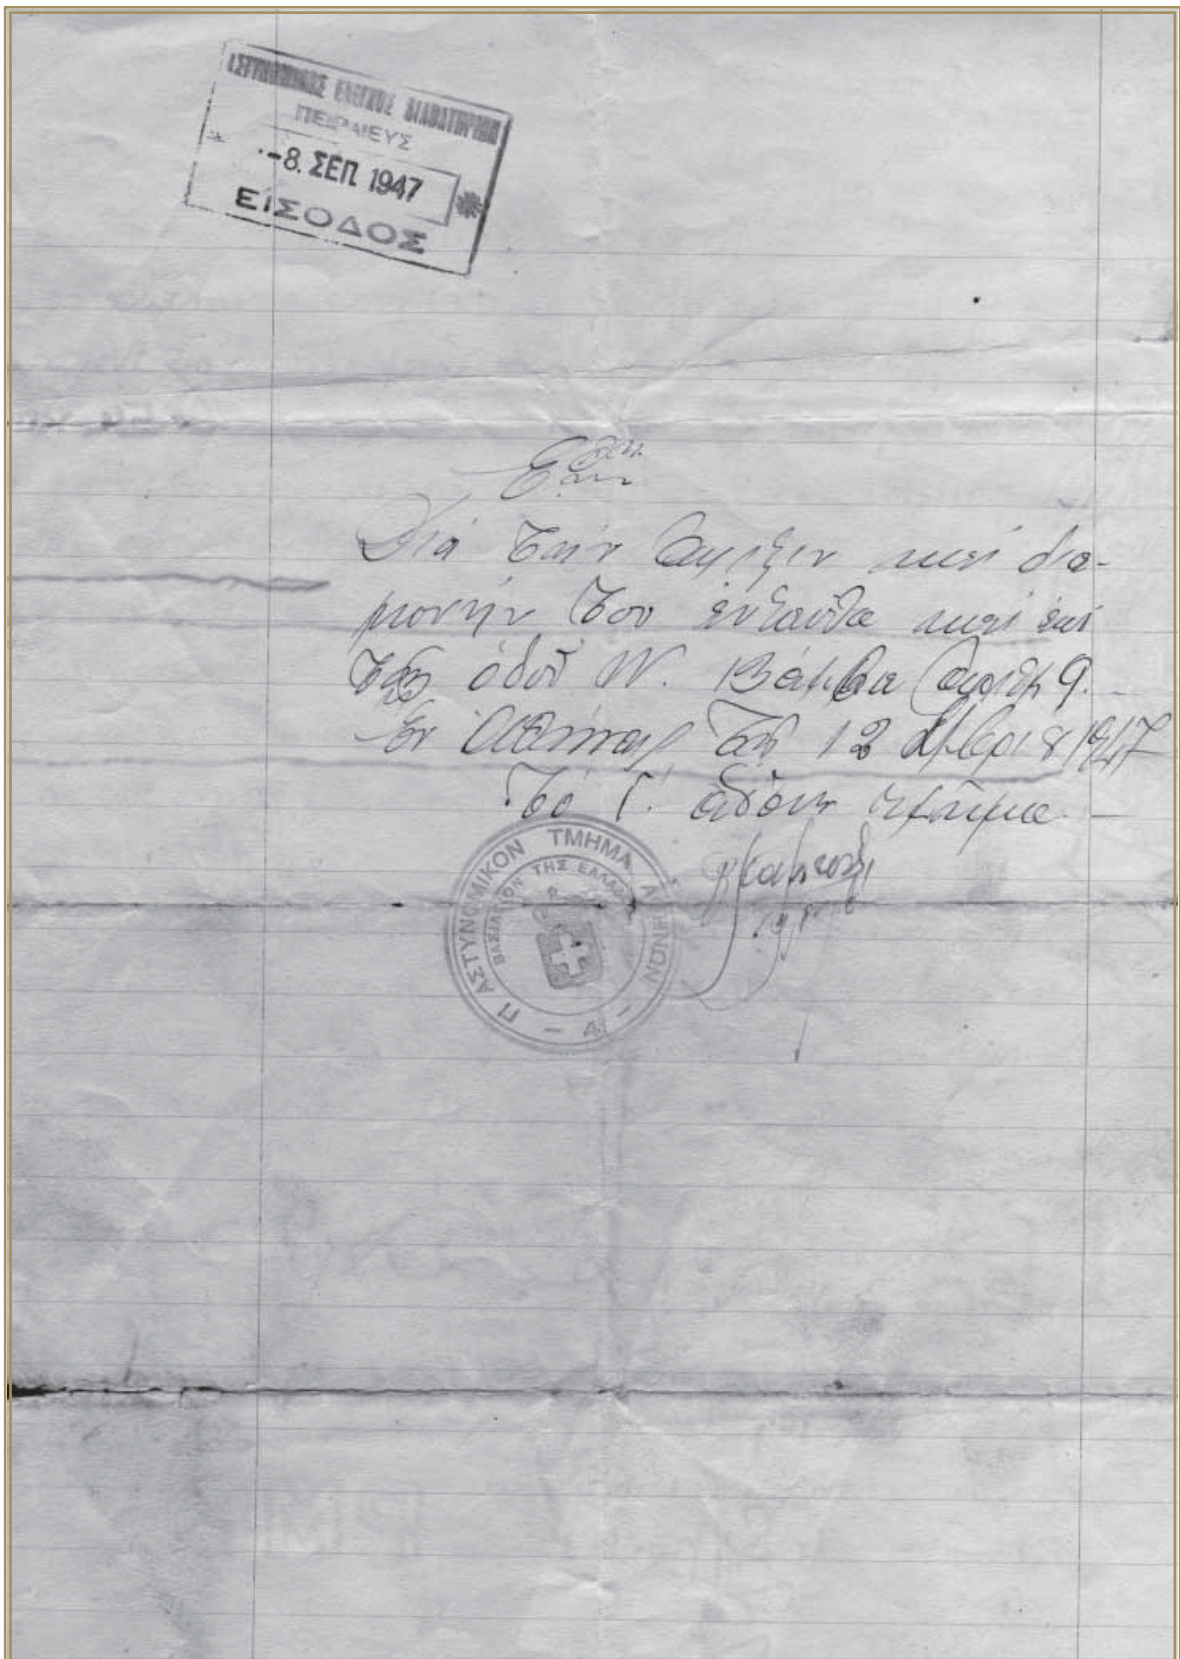 ΑΣΤΥΝΟΜΙΚΟΣ ΕΛΕΓΧΟΣ ΔΙΑΒΑΤΗΡΙΩΝ
ΠΕΙΡΑΙΕΥΣ
-8. ΣΕΠ 1947
ΕΙΣΟΔΟΣ
Διά τήν άφιξιν και δια-
μονήν του ενταύθα και επί
της οδού Ν. Βάμβα αριθμ 9.
Εν Αθήναις τη 12 1947
Το Γ'. τμήμα
ΑΣΤΥΝΟΜΙΚΟΝ ΤΜΗΜΑ ΑΘΗΝΩΝ
ΒΑΣΙΛΕΙΟΝ ΤΗΣ ΕΛΛΑΔΟΣ